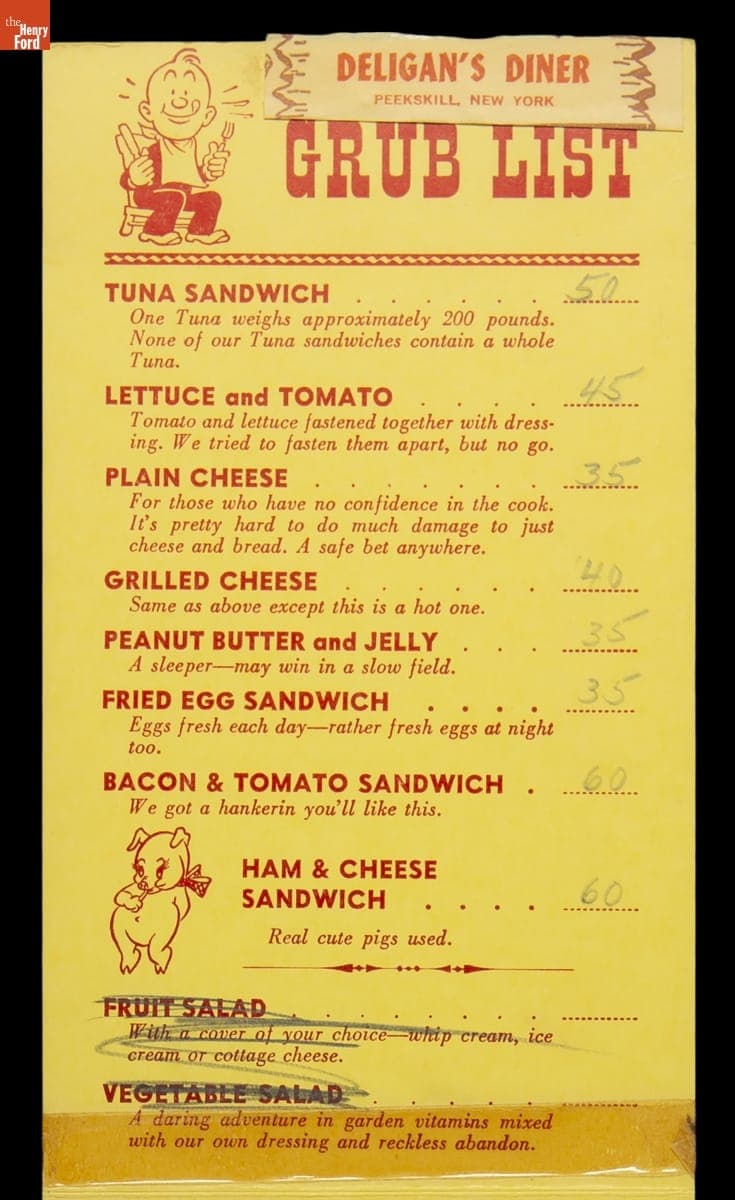 the
Henry
Ford
DELIGAN'S DINER
PEEKSKILL, NEW YORK
GRUB LIST
TUNA SANDWICH . . . . . . 50
One Tuna weighs approximately 200 pounds.
None of our Tuna sandwiches contain a whole
Tuna.
LETTUCE and TOMATO . . . . 45
Tomato and lettuce fastened together with dress-
ing. We tried to fasten them apart, but no go.
PLAIN CHEESE . . . . . . . 35
For those who have no confidence in the cook.
It's pretty hard to do much damage to just
cheese and bread. A safe bet anywhere.
GRILLED CHEESE . . . . . . 40
Same as above except this is a hot one.
PEANUT BUTTER and JELLY . . . 35
A sleeper—may win in a slow field.
FRIED EGG SANDWICH . . . . 35
Eggs fresh each day—rather fresh eggs at night
too.
BACON & TOMATO SANDWICH . 60
We got a hankerin you'll like this.
HAM & CHEESE
SANDWICH . . . . 60
Real cute pigs used.
FRUIT SALAD . . . . . . . .
With a cover of your choice—whip cream, ice
cream or cottage cheese.
VEGETABLE SALAD . . . . .
A daring adventure in garden vitamins mixed
with our own dressing and reckless abandon.